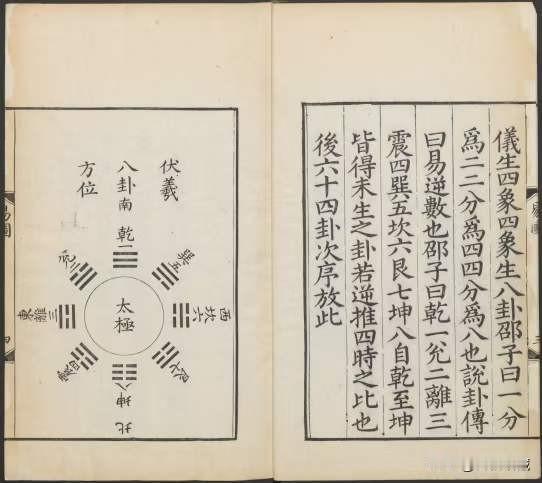 易圖
三
儀生四象四象生八卦邵子曰一分
爲二二分爲四四分爲八也說卦傳
曰易逆數也邵子曰乾一兌二離三
震四巽五坎六艮七坤八自乾至坤
皆得未生之卦若逆推四時之比也
後六十四卦次序放此
伏羲
八卦
方位
南
乾一
兌二
東
離三
震四
巽五
西
坎六
艮七
坤八
北
太極
易圖
四